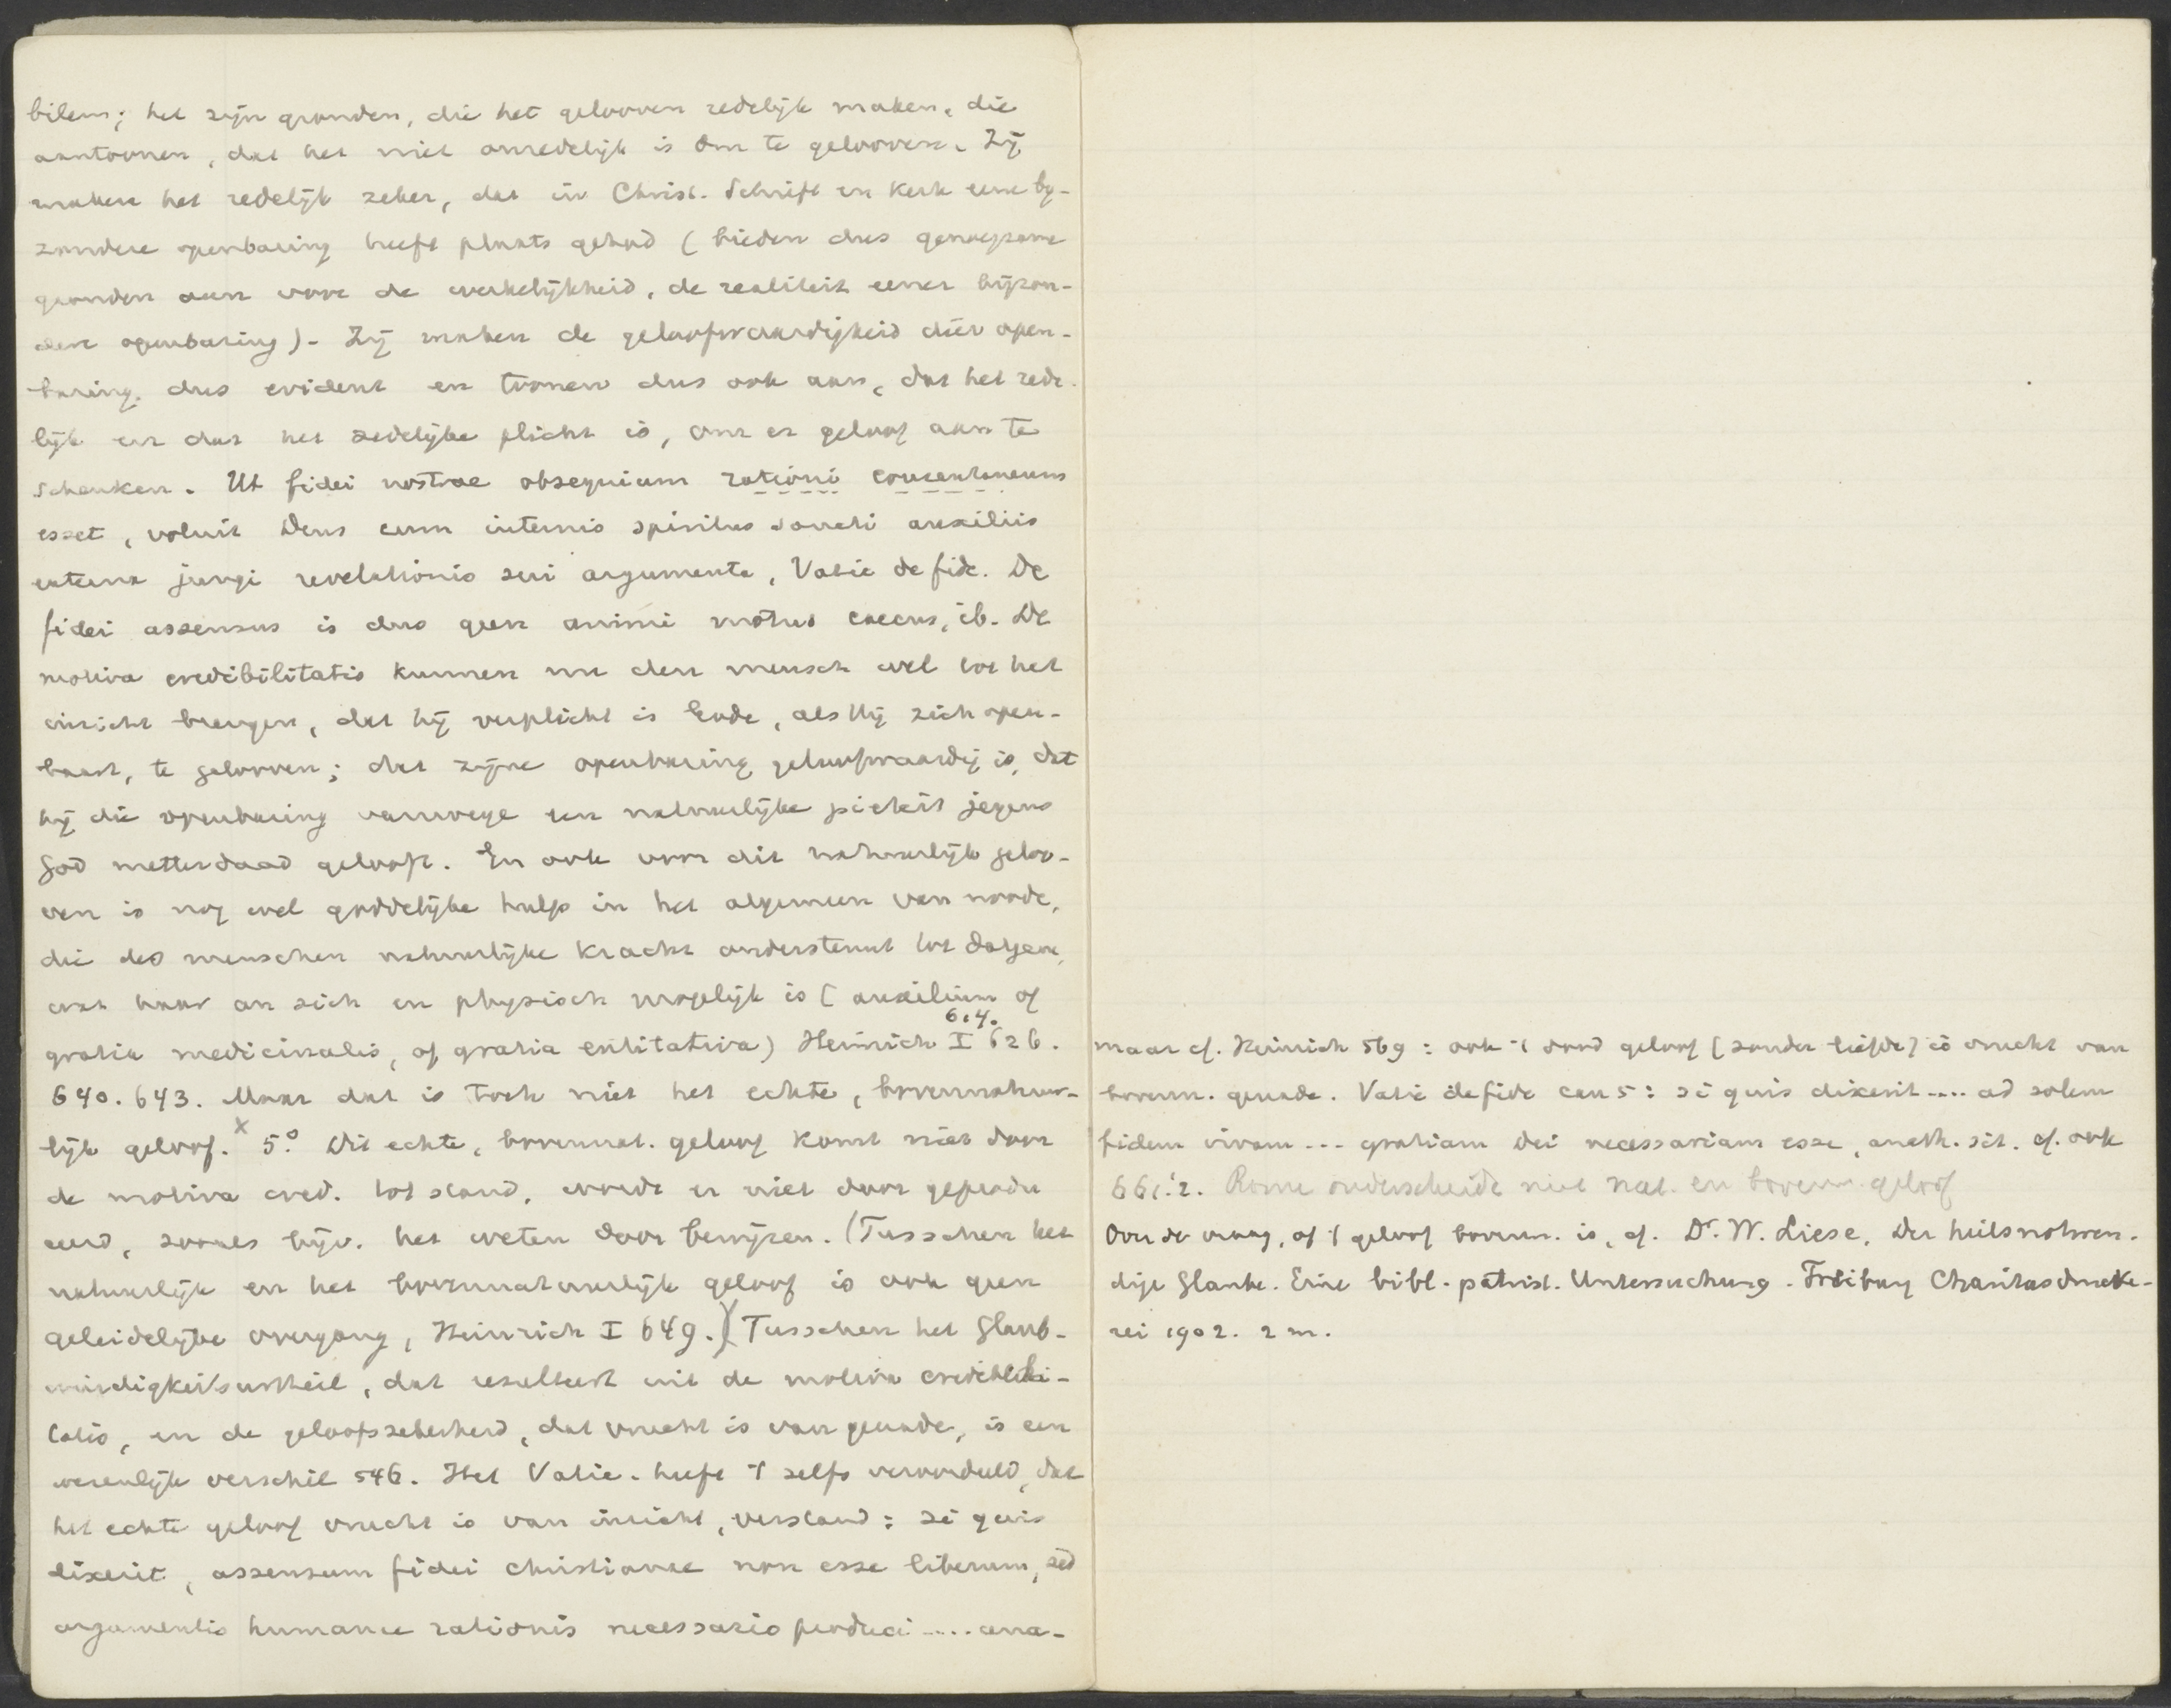 bilem; het zijn gronden, die het gelooven redelijk maken, die
aantoonen, dat het niet onredelijk is om te gelooven. Zij
maken het redelijk zeker, dat in Christ. Schrift en Kerk eene by-
zondere openbaring heeft plaats gehad (bieden dus genoegzame
gronden aan voor de werkelijkheid, de realiteit eener bijzon-
dere openbaring). Zij maken de geloofwaardigheid dier open-
baring dus evident en toonen dus ook aan, dat het rede-
lijk en dat het zedelijke plicht is, om er geloof aan te
schenken. Ut fidei nostrae obsequium rationi consentaneum
esset, voluit Deus cum internis spiritus sancti auxiliis
externa jungi revelationis suae argumenta, Vatic de fide. De
fidei assensus is dus geen animi motus caecus, ib. De
motiva credibilitatis kunnen nu den mensch wel tot het
inzicht brengen, dat hij verplicht is Gode, als Hij zich open-
baart, te gelooven; dat zijne openbaring geloofwaardig is, dat
hij die openbaring vanwege een natuurlijke pieteit jegens
God metterdaad gelooft. En ook voor dit natuurlijk geloo-
ven is nog wel goddelijke hulp in het algemeen van noode,
die des menschen natuurlijke kracht ondersteunt tot datgene,
wat haar an sich en physisch mogelijk is (auxilium of
gratia medicinalis, of gratia entitativa) Heinrich I 614. 626.
640. 643. Maar dat is toch niet het echte, bovennatuur-
lijk geloof. x 5° Dit echte, bovennat. geloof komt niet door
de motiva cred. tot stand, wordt er niet door geprodu
ceerd, zooals bijv. het weten door bewijzen. (Tusschen het
natuurlijk en het bovennatuurlijk geloof is ook geen
geleidelijke overgang, Heinrich I 649.) Tusschen het Glaub-
würdigkeitsurtheil, dat resulteert uit de motiva credibili-
tatis, en de geloofszekerheid, dat vrucht is van genade, is een
wezenlijk verschil 546. Het Vatic. heeft 't zelfs veroordeeld, dat
het echte geloof vrucht is van inzicht, verstand: si quis
dixerit, assensum fidei christianae non esse liberum, sed
argumentis humanae rationis necessario produci ..... ana-
maar cf. Heinrich 569: ook 't dood geloof (zonder liefde) is vrucht van
bovenn. genade. Vatic de fide can 5: si quis dixerit .... ad solam
fidem vivam --- gratiam Dei necessariam esse, anath. sit. cf. ook
661.2. Rome onderscheidt niet nat. en bovenn. geloof
Over de vraag, of 't geloof bovenn. is, cf. Dr. W. Liese, Der heilsnotwen-
dige Glaube. Eine bibl.-patrist. Untersuchung. Freiburg Charitasdrucke-
rei 1902. 2 m.